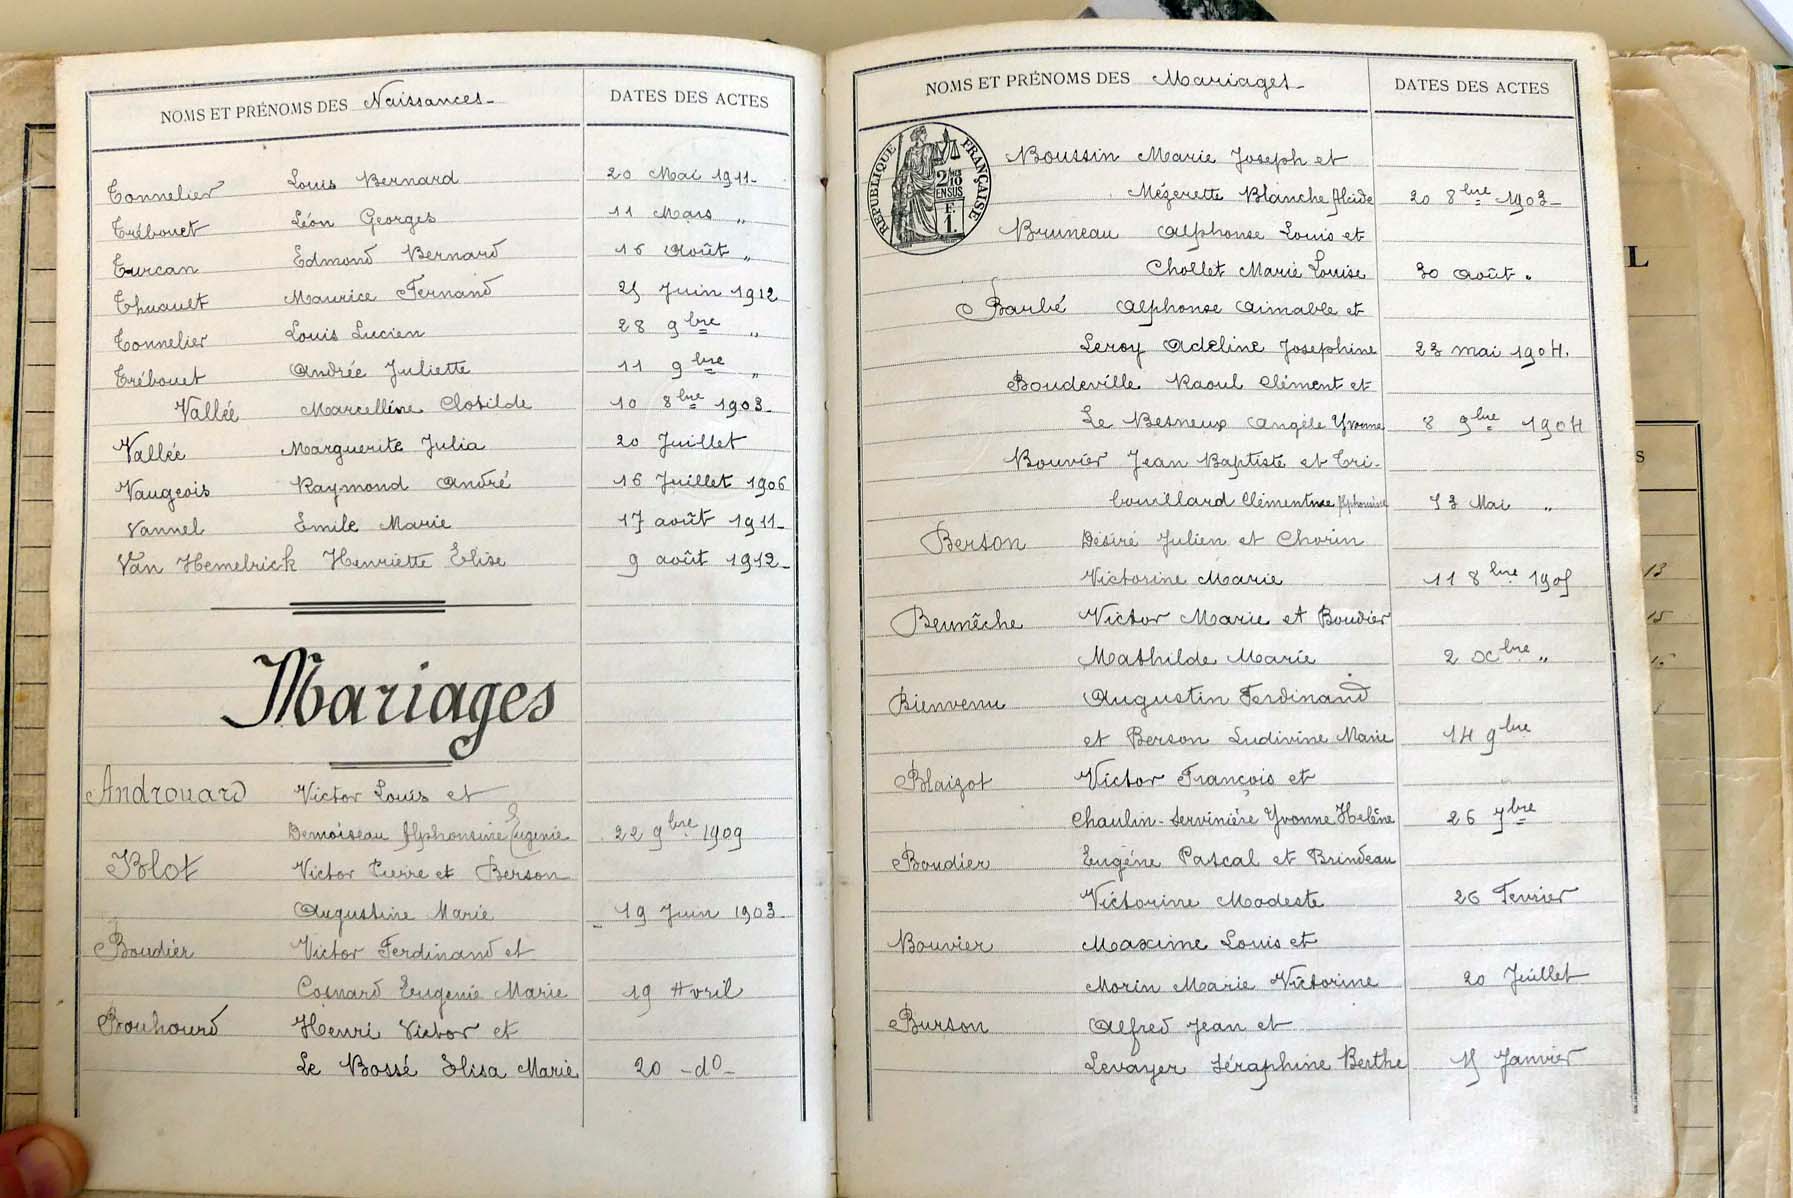 NOMS ET PRÉNOMS DES Naissances
DATES DES ACTES
Tonnelier Louis Bernard 20 Mai 1911
Trébouet Léon Georges 11 Mars "
Turcan Edmond Bernard 16 Août "
Thuault Maurice Fernand 25 Juin 1912
Tonnelier Louis Lucien 28 9bre "
Trébouet Andrée Juliette 11 9bre "
Vallée Marcelline Clotilde 10 8bre 1903
Vallée Marguerite Julia 20 Juillet
Vaugeois Raymond André 16 Juillet 1906
Vannel Emile Marie 17 août 1911
Van Hemelrick Henriette Elise 9 août 1912
Mariages
Androuard Victor Louis et
Demoiseau Alphonsine Eugenie 22 9bre 1909
Blot Victor Pierre et Berson
Augustine Marie 19 Juin 1903
Boudier Victor Ferdinand et
Cosnard Eugenie Marie 19 Avril
Bouhourd Henri Victor et
Le Bossé Elisa Marie 20 -do-
NOMS ET PRÉNOMS DES Mariages
DATES DES ACTES
RÉPUBLIQUE FRANÇAISE
2/10
EN SUS
F.
1.
Boussin Marie Joseph et
Mézerette Blanche Alcide 20 8bre 1903
Bruneau Alphonse Louis et
Chollet Marie Louise 30 août "
Barbé Alphonse Aimable et
Leroy Adeline Josephine 23 mai 1904.
Boudeville Raoul Clément et
Le Besneux Angèle Yvonne 8 9bre 1904
Bouvier Jean Baptiste et Tri-
bouillard Clémentine Alphonsine 13 Mai "
Berson Désiré Julien et Chorin
Victorine Marie 11 8bre 1905
Beunêche Victor Marie et Boudier
Mathilde Marie 2 Xbre "
Bienvenu Augustin Ferdinand
et Berson Ludivine Marie 14 9bre
Blaizot Victor François et
Chaulin-Servinière Yvonne Helène 26 7bre
Boudier Eugène Pascal et Brindeau
Victorine Modeste 26 Fevrier
Bouvier Maxime Louis et
Morin Marie Victorine 20 Juillet
Burson Alfred Jean et
Levayer Séraphine Berthe 15 Janvier
L
S
13
15